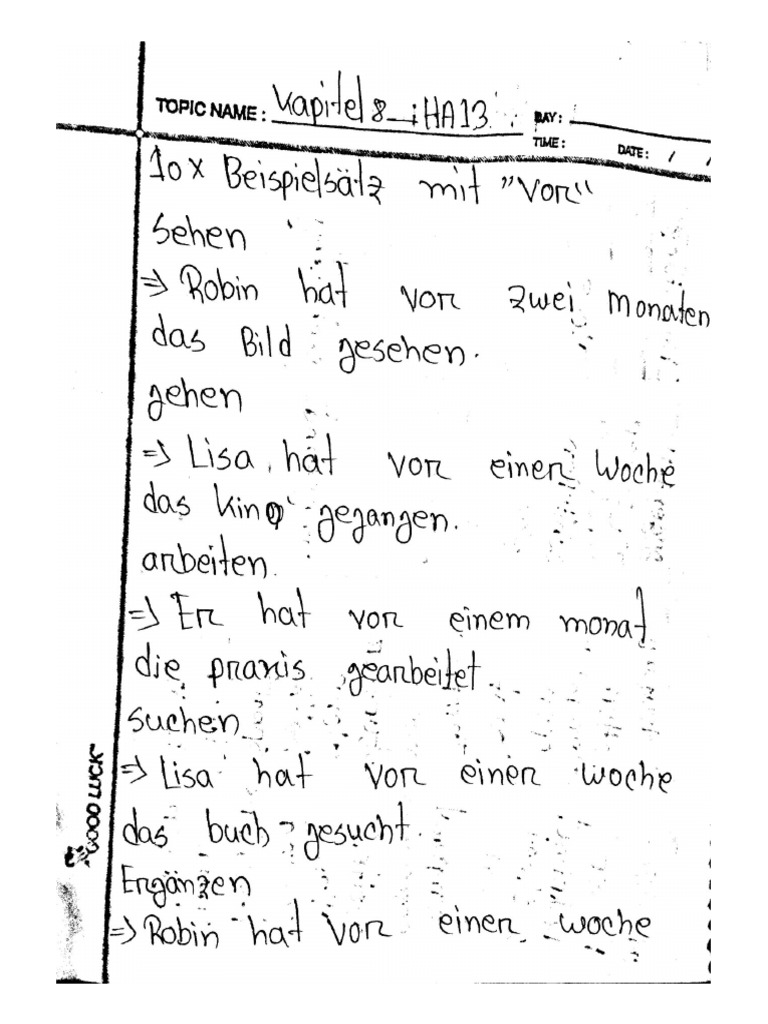 TOPIC NAME: Kapitel 8_iHA13. DAY:
TIME: DATE: / /
10x Beispielsätz mit "Vor"
Sehen
=> Robin hat vor zwei monaten
das Bild gesehen.
gehen
=> Lisa hat vor einer Woche
das Kino gegangen.
arbeiten
=> Er hat vor einem monat
die praxis gearbeitet.
suchen
=> Lisa hat vor einer woche
das buch gesucht.
GOOD LUCK
Ergänzen
=> Robin hat Vor einer woche